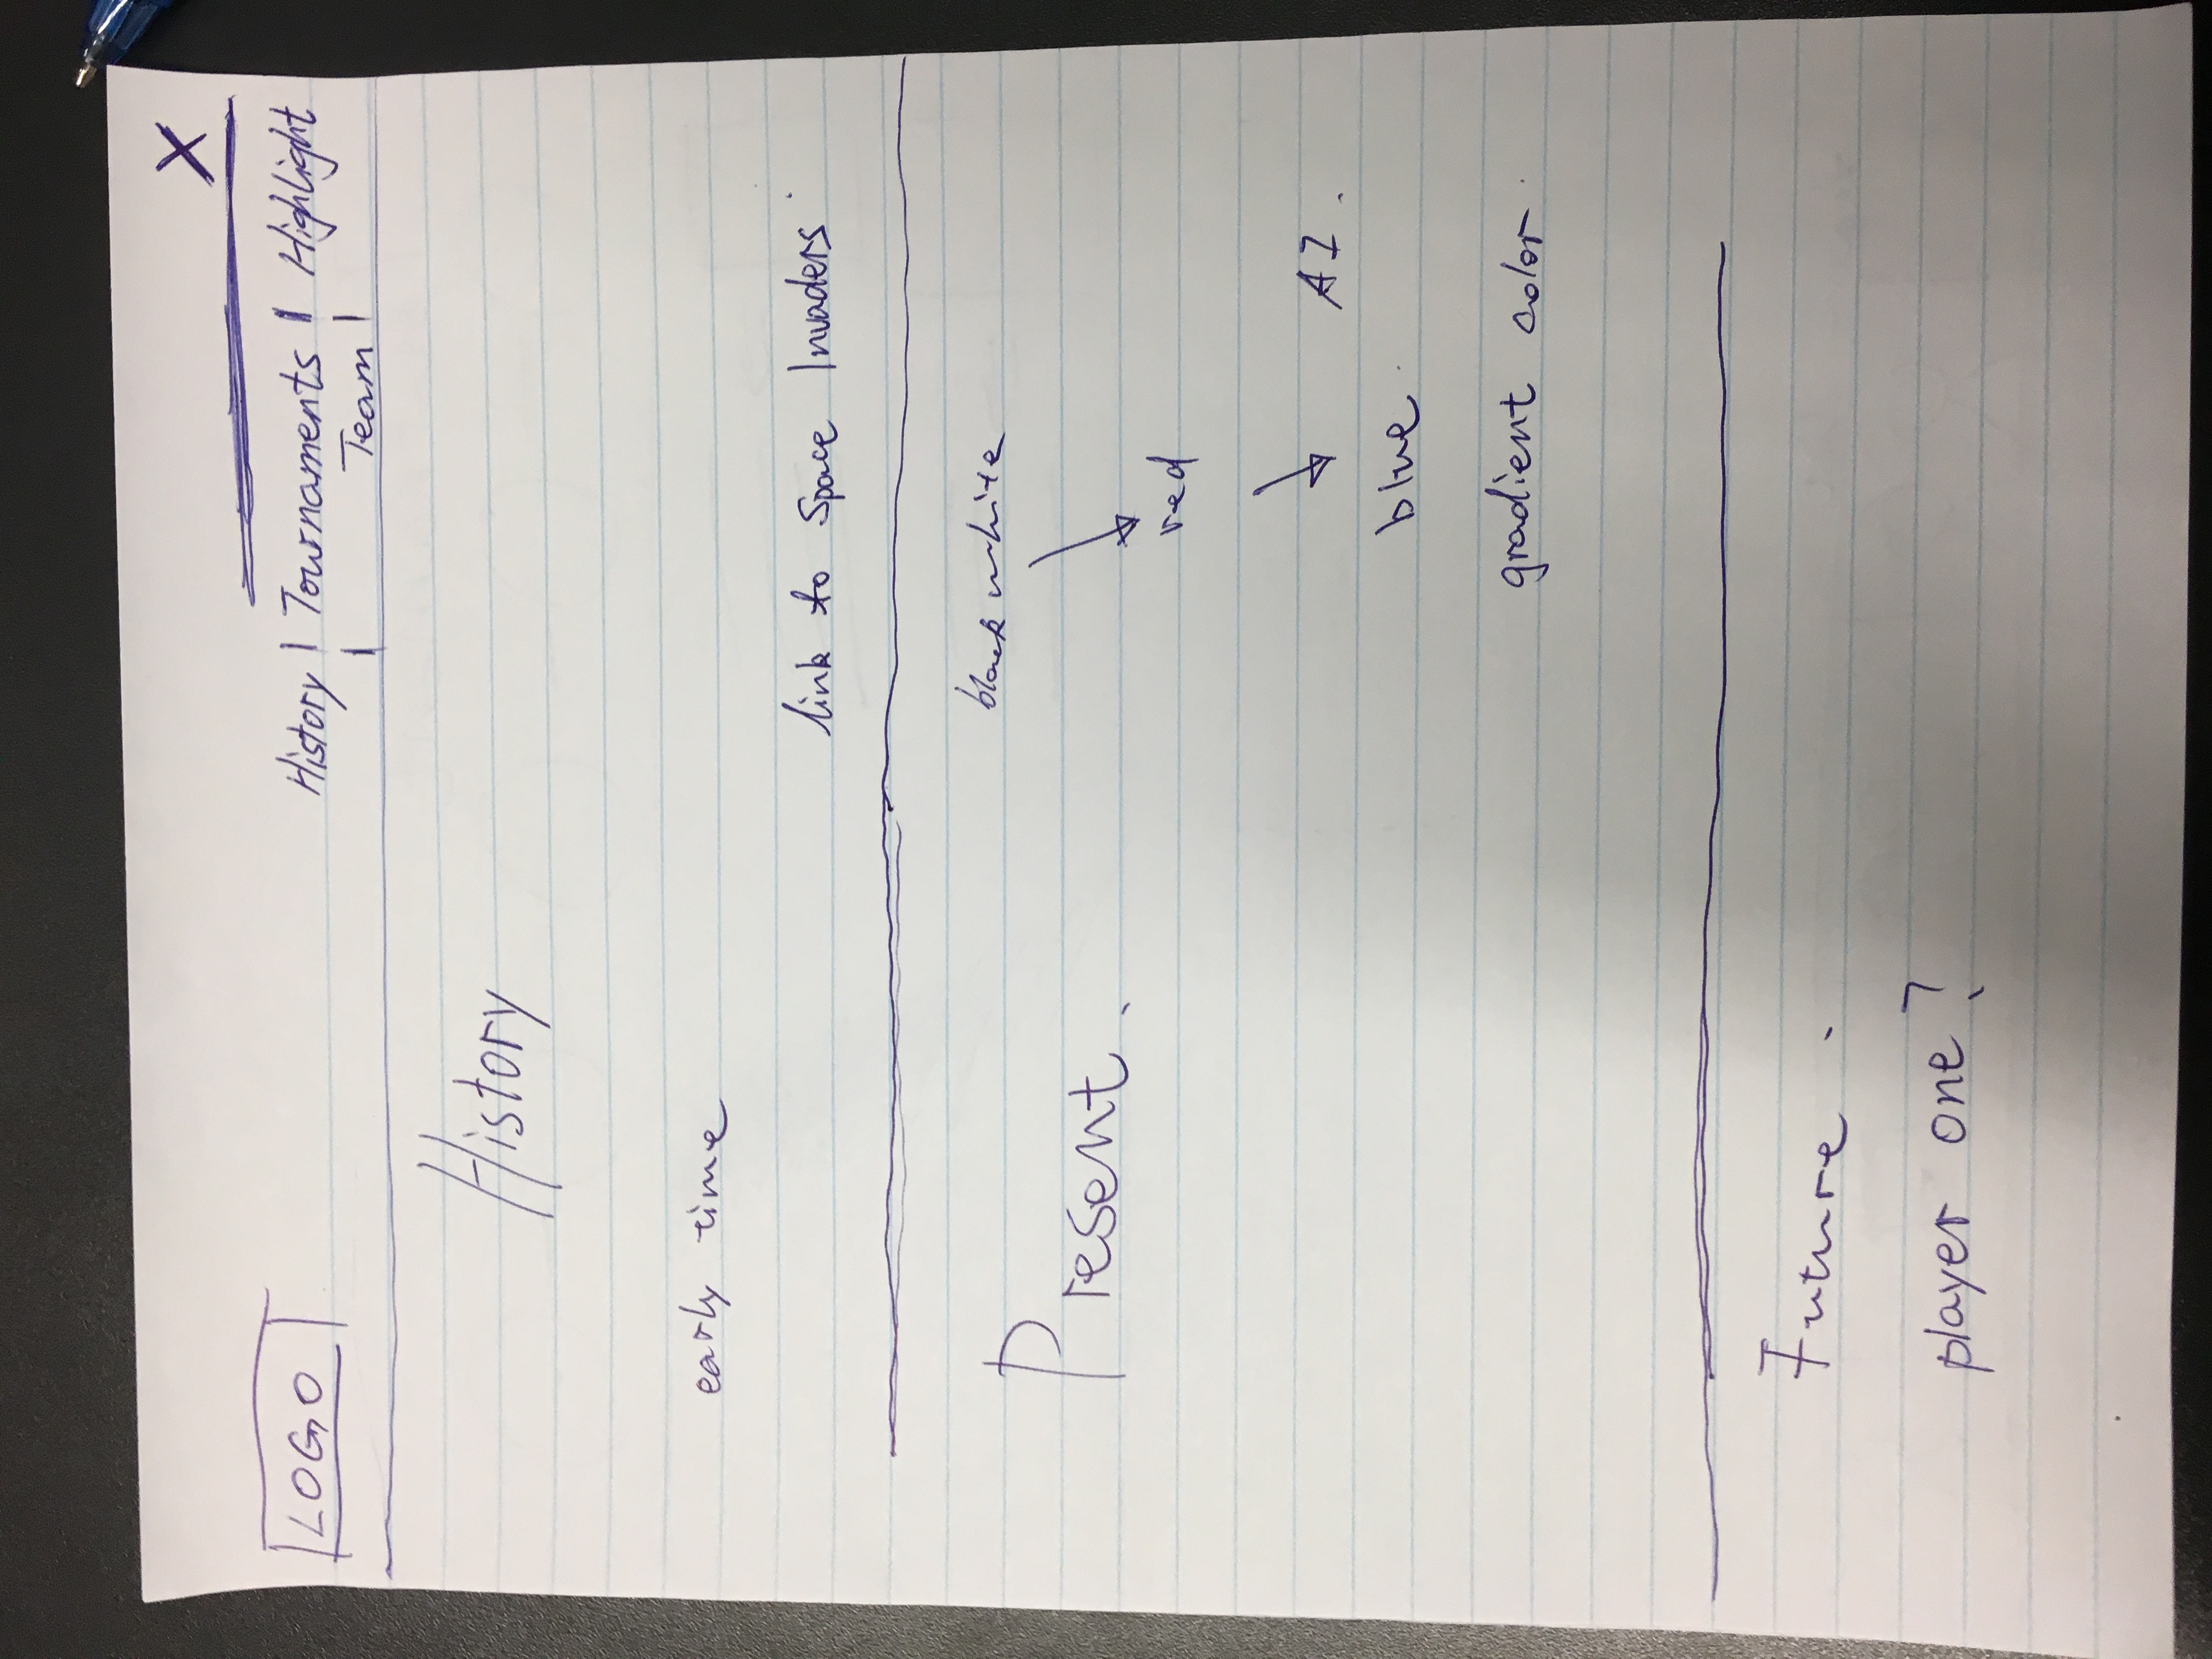 X
LOGO
History | Tournaments | Highlight
| Team |
History
early time
link to Space Invaders
black white
Present.
red
AI.
blue
gradient color
Future.
player one?